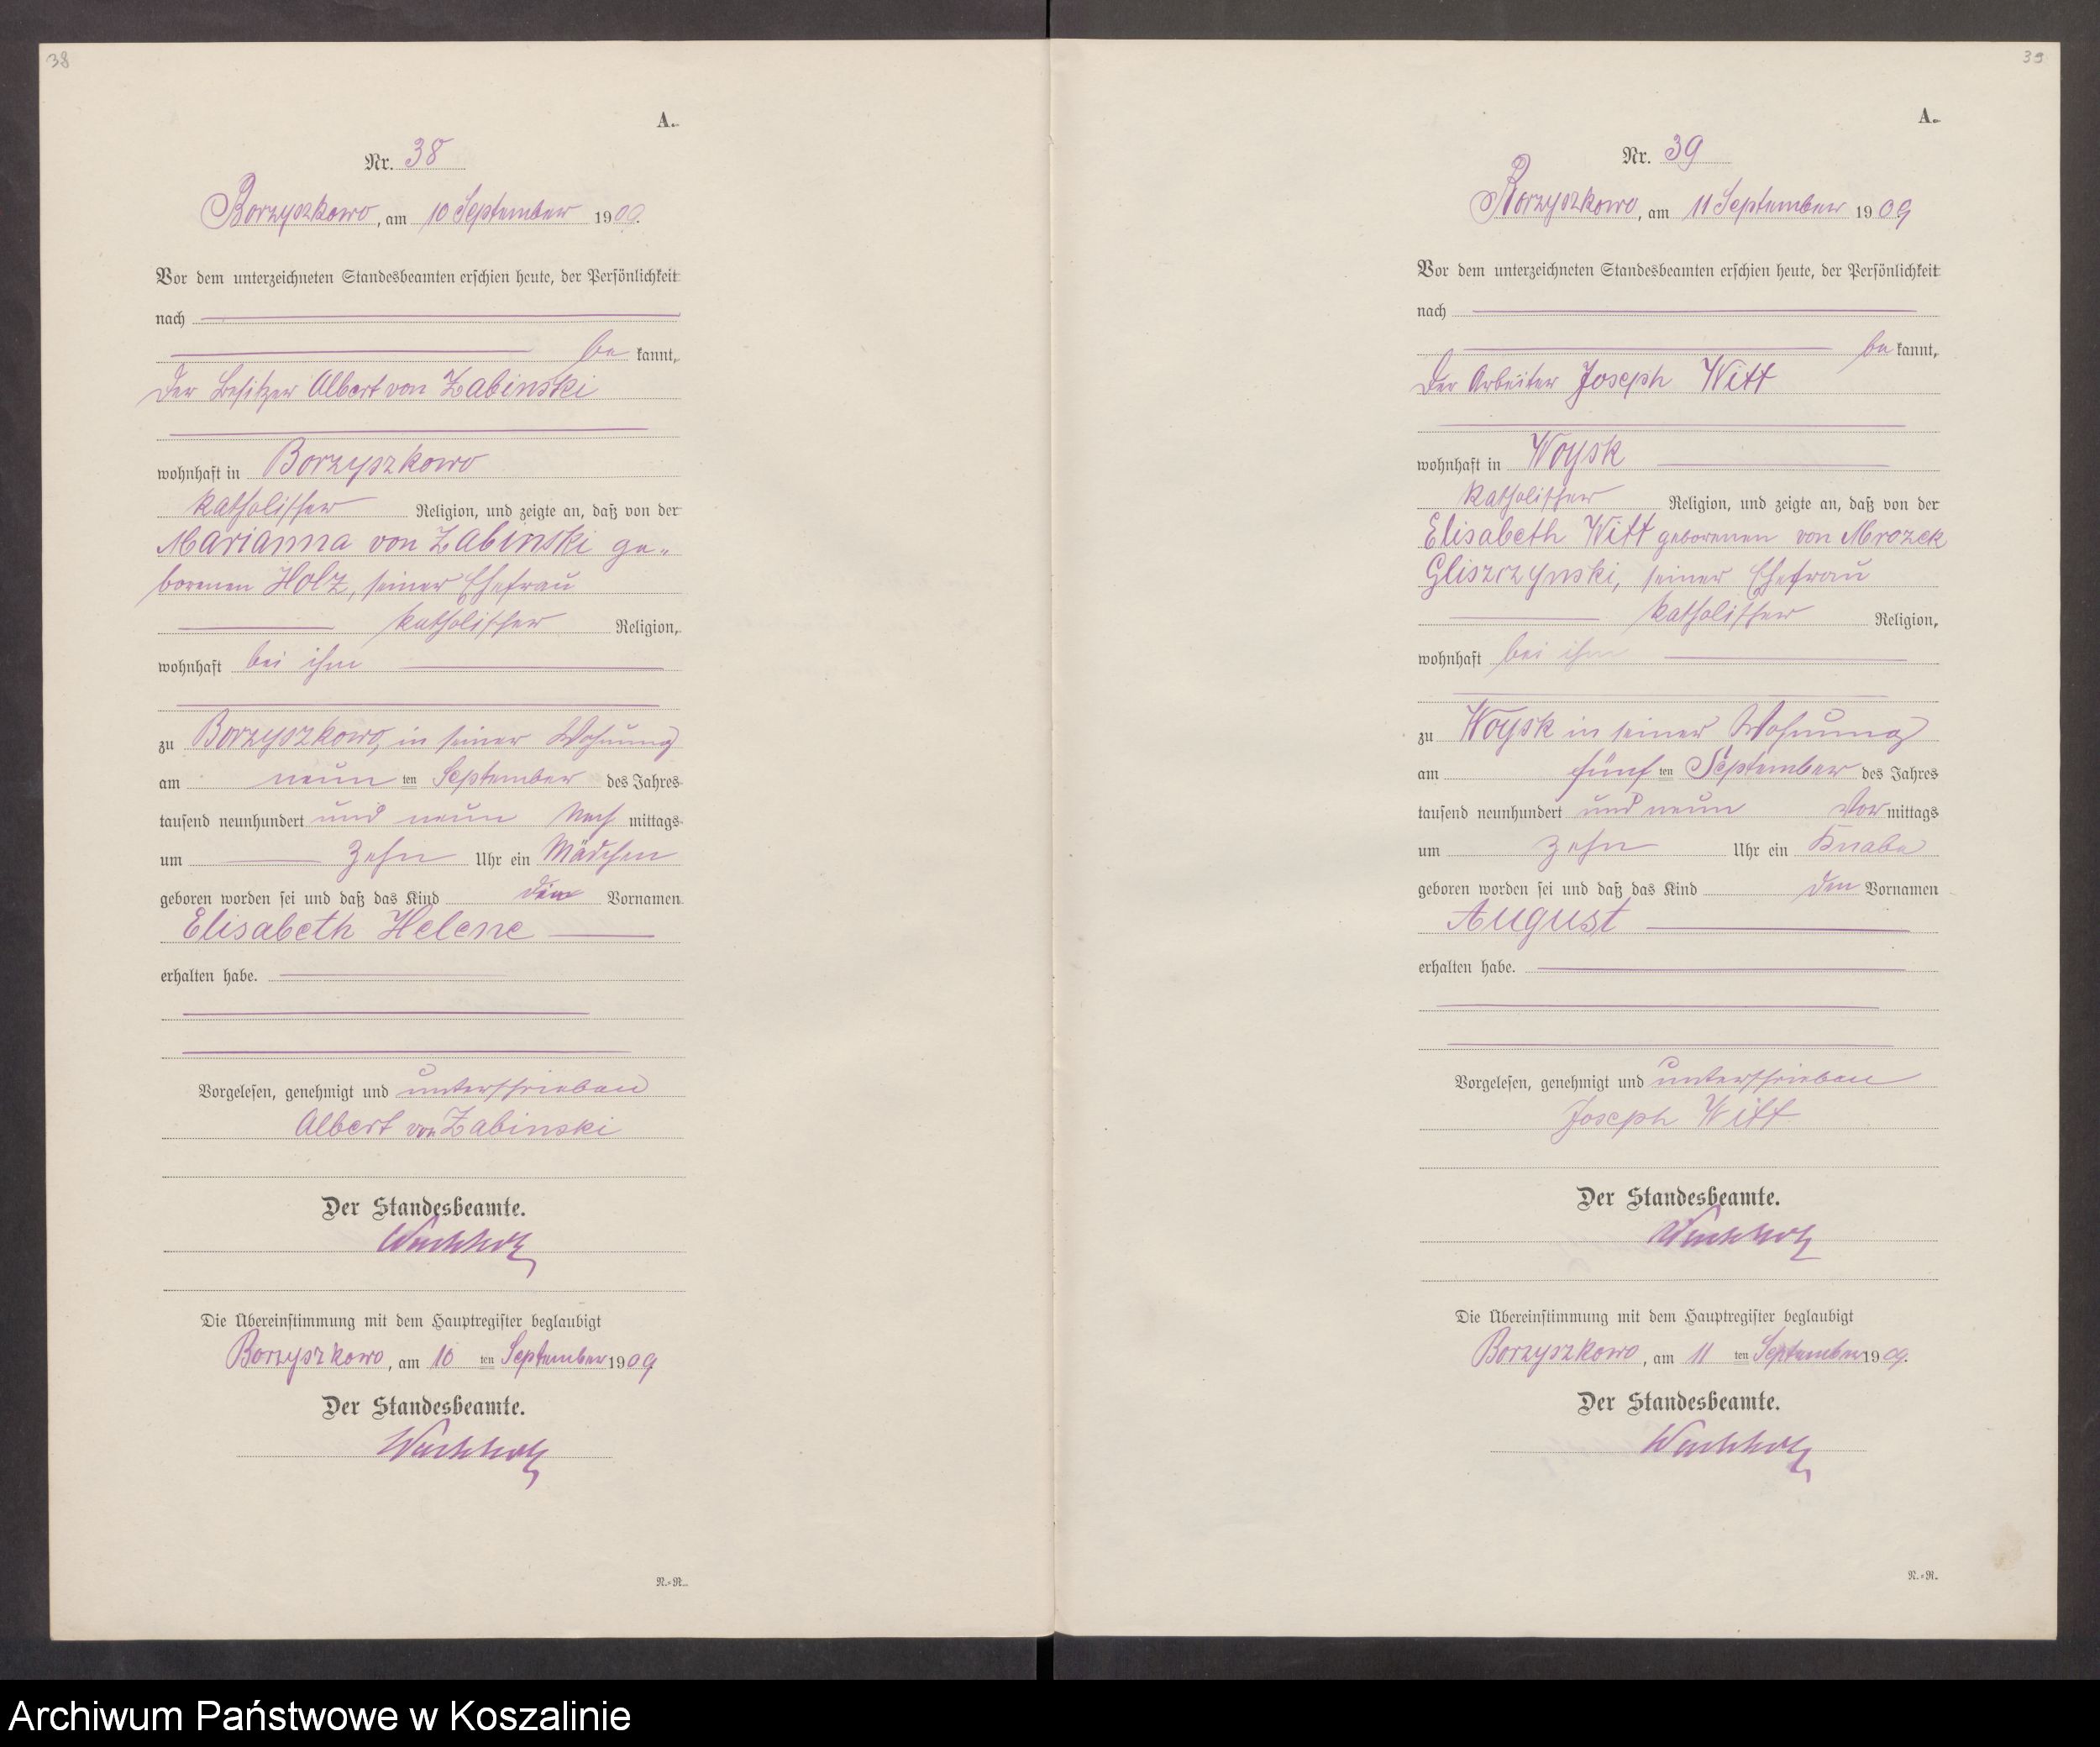 38
A.
Nr. 38
Borzyszkowo, am 10 September 1909.
Vor dem unterzeichneten Standesbeamten erschien heute, der Persönlichkeit
nach
be kannt,
der Besitzer Albert von Zabinski
wohnhaft in Borzyszkowo
katholischer Religion, und zeigte an, daß von der
Marianna von Zabinski ge-
borenen Holz, seiner Ehefrau
katholischer Religion,
wohnhaft bei ihm
zu Borzyszkowo, in seiner Wohnung
am neun ten September des Jahres
tausend neunhundert und neun Nach mittags
um zehn Uhr ein Mädchen
geboren worden sei und daß das Kind die Vornamen
Elisabeth Helene
erhalten habe.
Vorgelesen, genehmigt und unterschrieben
Albert von Zabinski
Der Standesbeamte.
Wachholz
Die Übereinstimmung mit dem Hauptregister beglaubigt
Borzyszkowo, am 10 ten September 1909.
Der Standesbeamte.
Wachholz
N.=R.
39
A.
Nr. 39
Borzyszkowo, am 11 September 1909
Vor dem unterzeichneten Standesbeamten erschien heute, der Persönlichkeit
nach
be kannt,
der Arbeiter Joseph Witt
wohnhaft in Woysk
katholischer Religion, und zeigte an, daß von der
Elisabeth Witt geborenen von Mrozek
Gliszczynski, seiner Ehefrau
katholischer Religion,
wohnhaft bei ihm
zu Woysk in seiner Wohnung
am fünf ten September des Jahres
tausend neunhundert und neun Vor mittags
um zehn Uhr ein Knabe
geboren worden sei und daß das Kind den Vornamen
August
erhalten habe.
Vorgelesen, genehmigt und unterschrieben
Joseph Witt
Der Standesbeamte.
Wachholz
Die Übereinstimmung mit dem Hauptregister beglaubigt
Borzyszkowo, am 11 ten September 1909.
Der Standesbeamte.
Wachholz
N.=R.
Archiwum Państwowe w Koszalinie